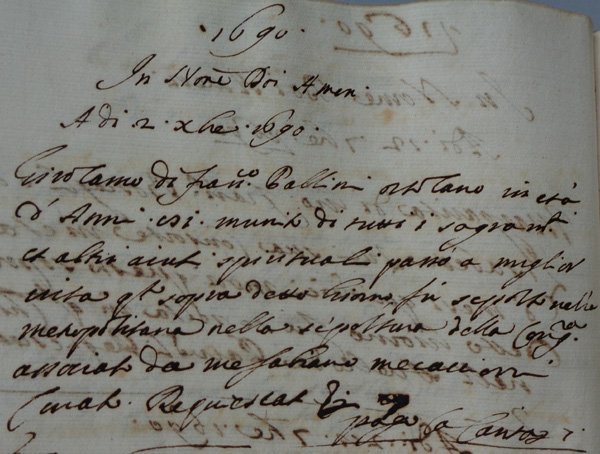 · 1690 ·
In Nom̃e Dei Amen
A di 2 · xbre · 1690 ·
Girolamo di fran.º Pallini ortolano in età
d'Anni · munit. di tutti i sagram.ti
et altri aiuti spirituali passò a miglior
vita q.to sopra detto Giorno fù sepolto nella
metropolitana nella sepoltura della
associato da me fabiano
Curat. Requiescat